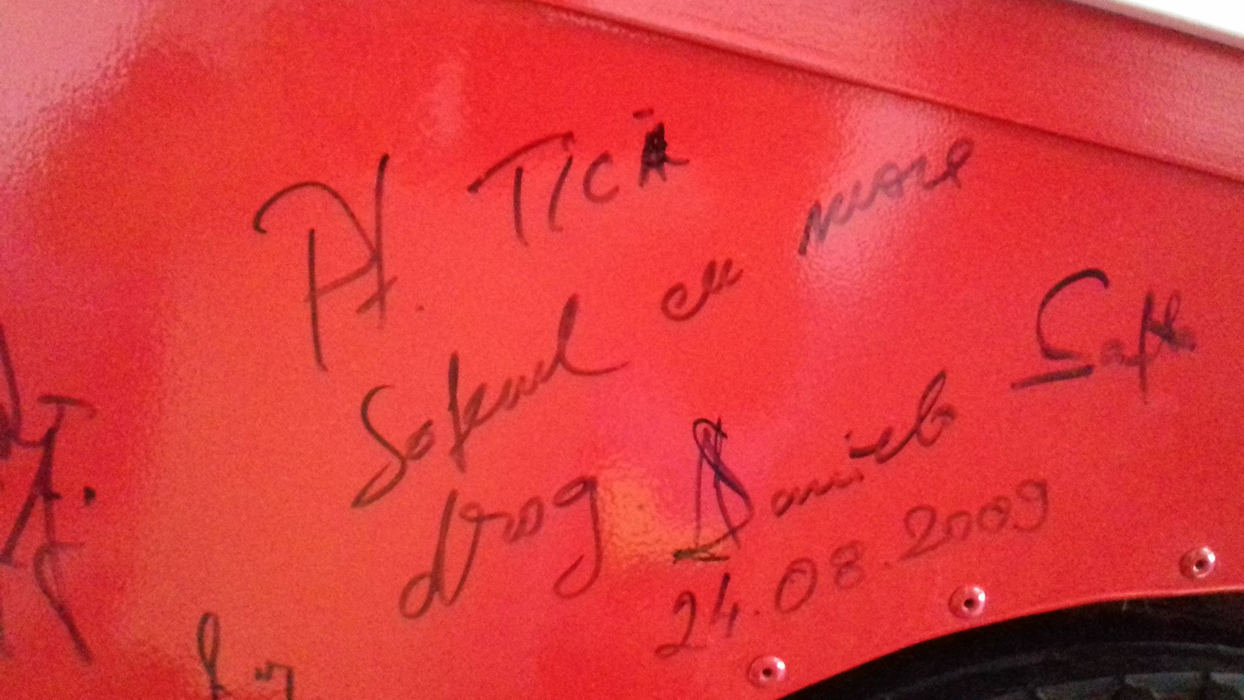 Pt. TICĂ
Soferul cu mare
drag Daniela Safta
24.08.2009